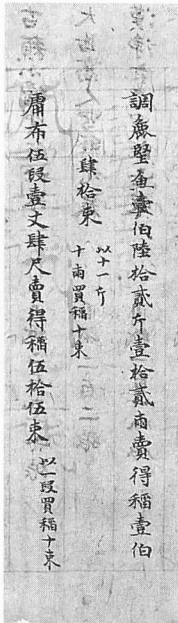 調麁堅魚壹伯陸拾貳斤壹拾貳兩賣得稲壹伯
肆拾束
以十一斤
十兩買稲十束
庸布伍段壹丈肆尺賣得稲伍拾伍束 以一段買稲十束